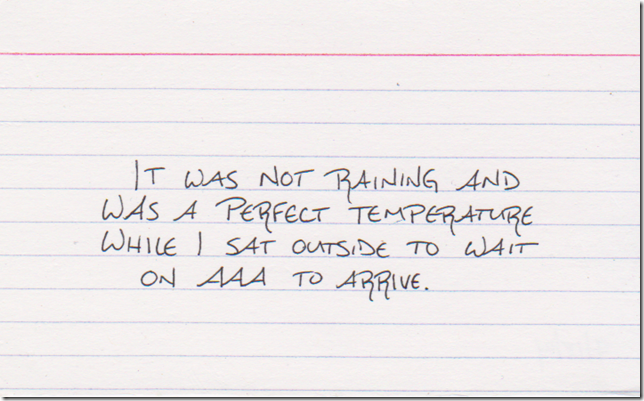 It was not raining and
was a perfect temperature
while I sat outside to wait
on AAA to arrive.